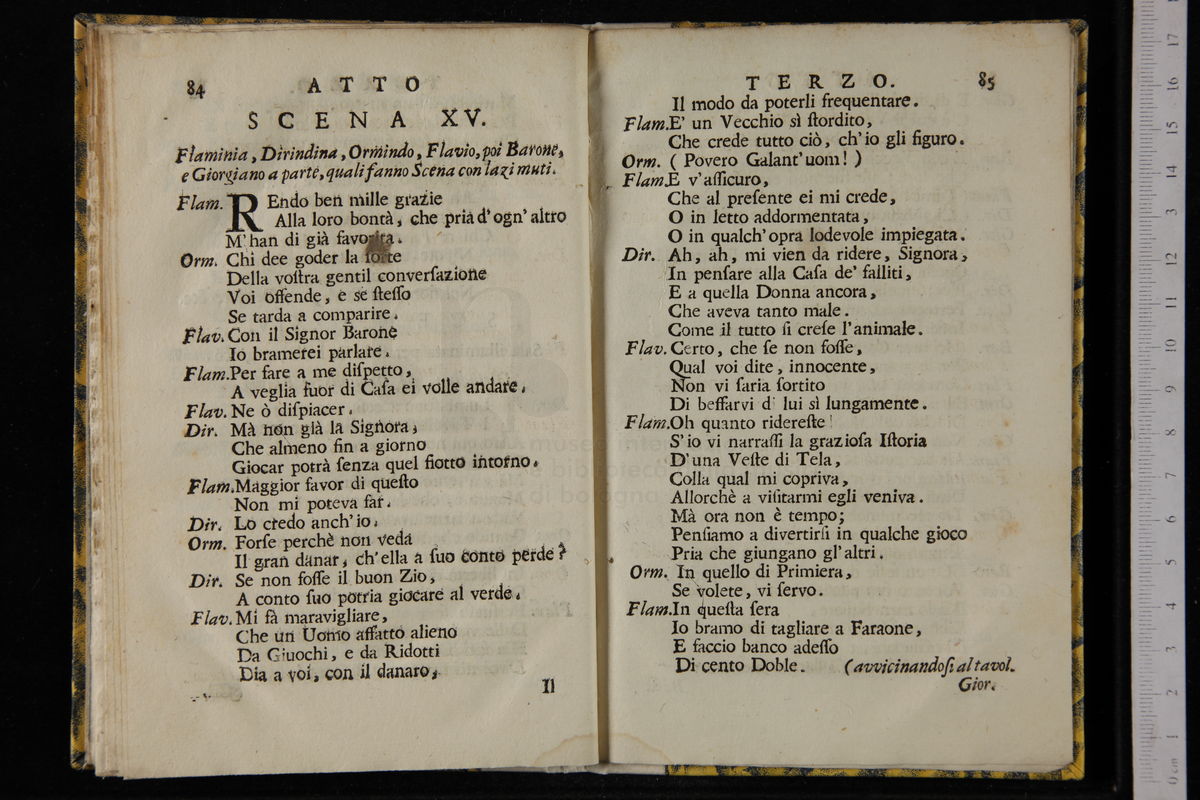 84 ATTO
SCENA XV.
Flaminia, Dirindina, Ormindo, Flavio, poi Barone,
e Giorgiano a parte, quali fanno Scena con lazi muti.
Flam. REndo ben mille grazie
Alla loro bontà, che pria d'ogn'altro
M'han di già favorita.
Orm. Chi dee goder la ſorte
Della voſtra gentil converſazione
Voi offende, e se ſteſſo
Se tarda a comparire.
Flav. Con il Signor Barone
Io bramerei parlare.
Flam. Per fare a me diſpetto,
A veglia fuor di Caſa ei volle andare.
Flav. Ne ò diſpiacer.
Dir. Mà non già la Signora,
Che almeno fin a giorno
Giocar potrà ſenza quel fiotto intorno.
Flam. Maggior favor di queſto
Non mi poteva far.
Dir. Lo credo anch'io.
Orm. Forſe perchè non veda
Il gran danar, ch'ella a ſuo conto perde?
Dir. Se non foſſe il buon Zio,
A conto ſuo potria giocare al verde.
Flav. Mi fà maravigliare,
Che un Uomo affatto alieno
Da Giuochi, e da Ridotti
Dia a voi, con il danaro,
Il
TERZO. 85
Il modo da poterli frequentare.
Flam. E' un Vecchio sì ſtordito,
Che crede tutto ciò, ch'io gli figuro.
Orm. (Povero Galant'uom!)
Flam. E v'aſſicuro,
Che al preſente ei mi crede,
O in letto addormentata,
O in qualch'opra lodevole impiegata.
Dir. Ah, ah, mi vien da ridere, Signora,
In penſare alla Caſa de' falliti,
E a quella Donna ancora,
Che aveva tanto male.
Come il tutto ſi creſe l'animale.
Flav. Certo, che ſe non foſſe,
Qual voi dite, innocente,
Non vi ſaria ſortito
Di beffarvi d' lui sì lungamente.
Flam. Oh quanto ridereſte!
S'io vi narraſſi la grazioſa Iſtoria
D'una Veſte di Tela,
Colla qual mi copriva,
Allorchè a viſitarmi egli veniva.
Mà ora non è tempo;
Penſiamo a divertirſi in qualche gioco
Pria che giungano gl'altri.
Orm. In quello di Primiera,
Se volete, vi ſervo.
Flam. In queſta ſera
Io bramo di tagliare a Faraone,
E faccio banco adeſſo
Di cento Doble. (avvicinandoſi al tavol.
Gior.